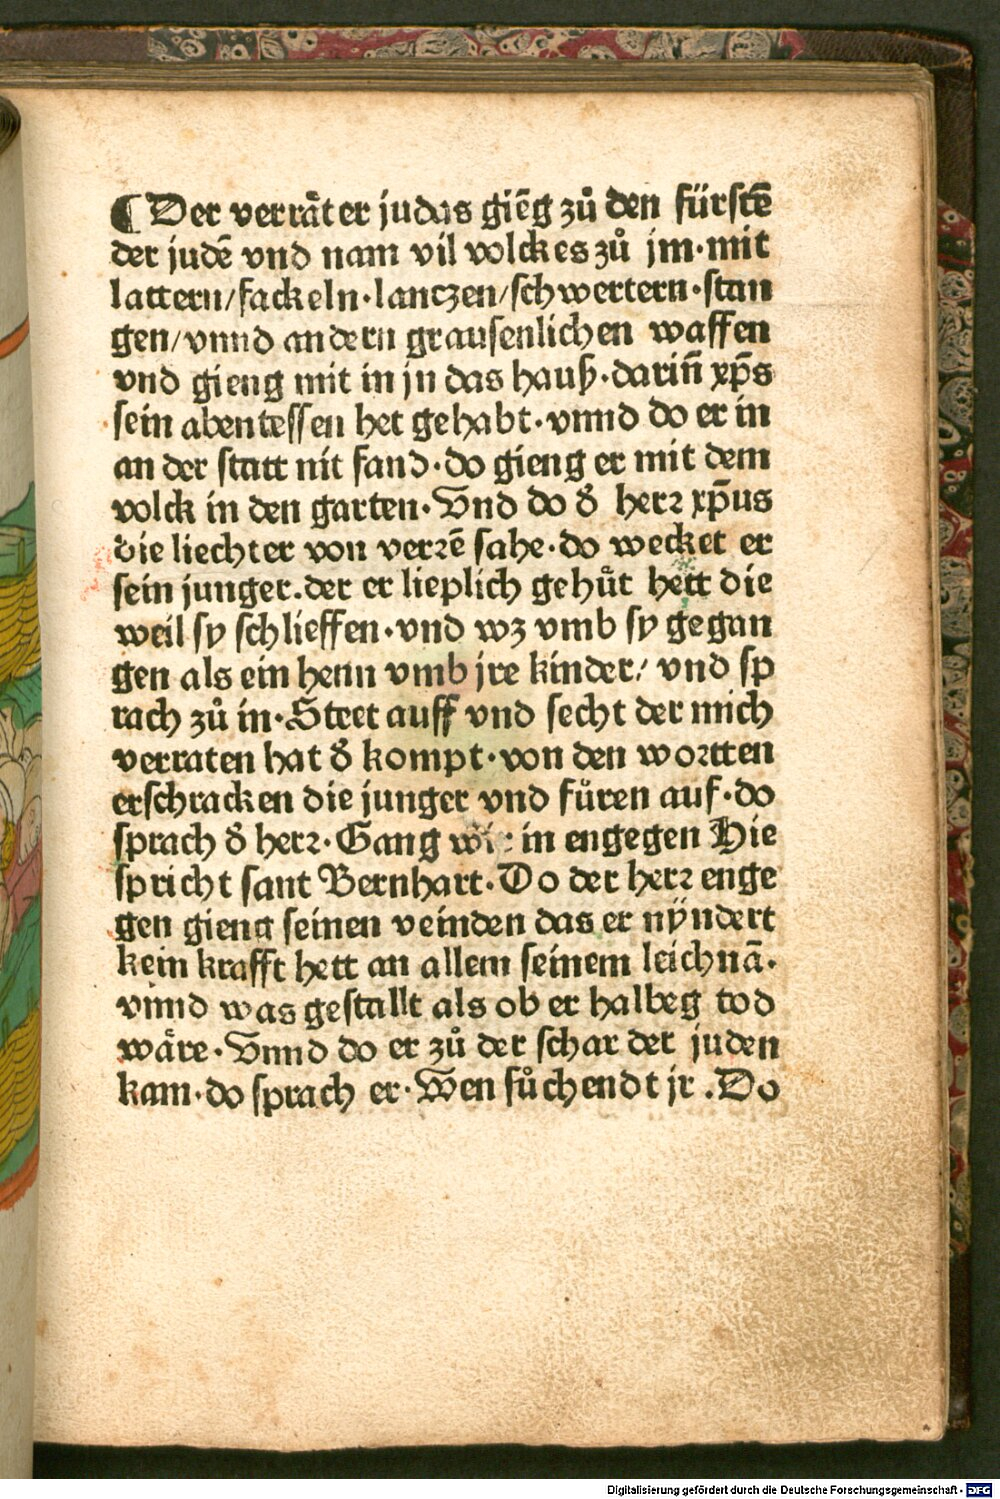 ¶ Der verrͣter judas giēg zů den fürstē
der judē vnd nam vil volckes zů jm·mit
lattern/fackeln·lanczen/schwertern·stan
gen/vnnd andern grausenlichen waffen
vnd gieng mit in jn das hauß·dariñ xp̄s
sein abentessen het gehabt·vnnd do er in
an der statt nit fand·do gieng er mit dem
volck in den garten·Vnd do d̕ herꝛ xp̄us
die liechter von verꝛē sahe·do wecket er
sein junger.der er lieplich gehůt hett die
weil sy schlieffen·vnd wz vmb sy gegan
gen als ein henn vmb jre kinder/ vnd sp
rach zů in·Steet auff vnd secht der mich
verraten hat d̕ kompt·von den woꝛtten
erschracken die junger vnd fůren auf·do
sprach d̕ herꝛ·Gang wir in engegen Hie
spricht sant Bernhart·Do der herꝛ enge
gen gieng seinen veinden das er nÿndert
kein krafft hett an allem seinem leichnā·
vnnd was gestallt als ob er halbeg tod
wͣre·Vnnd do er zů der schar der juden
kam·do sprach er·Wen sůchendt jr .Do
Digitalisierung gefördert durch die Deutsche Forschungsgemeinschaft - DFG